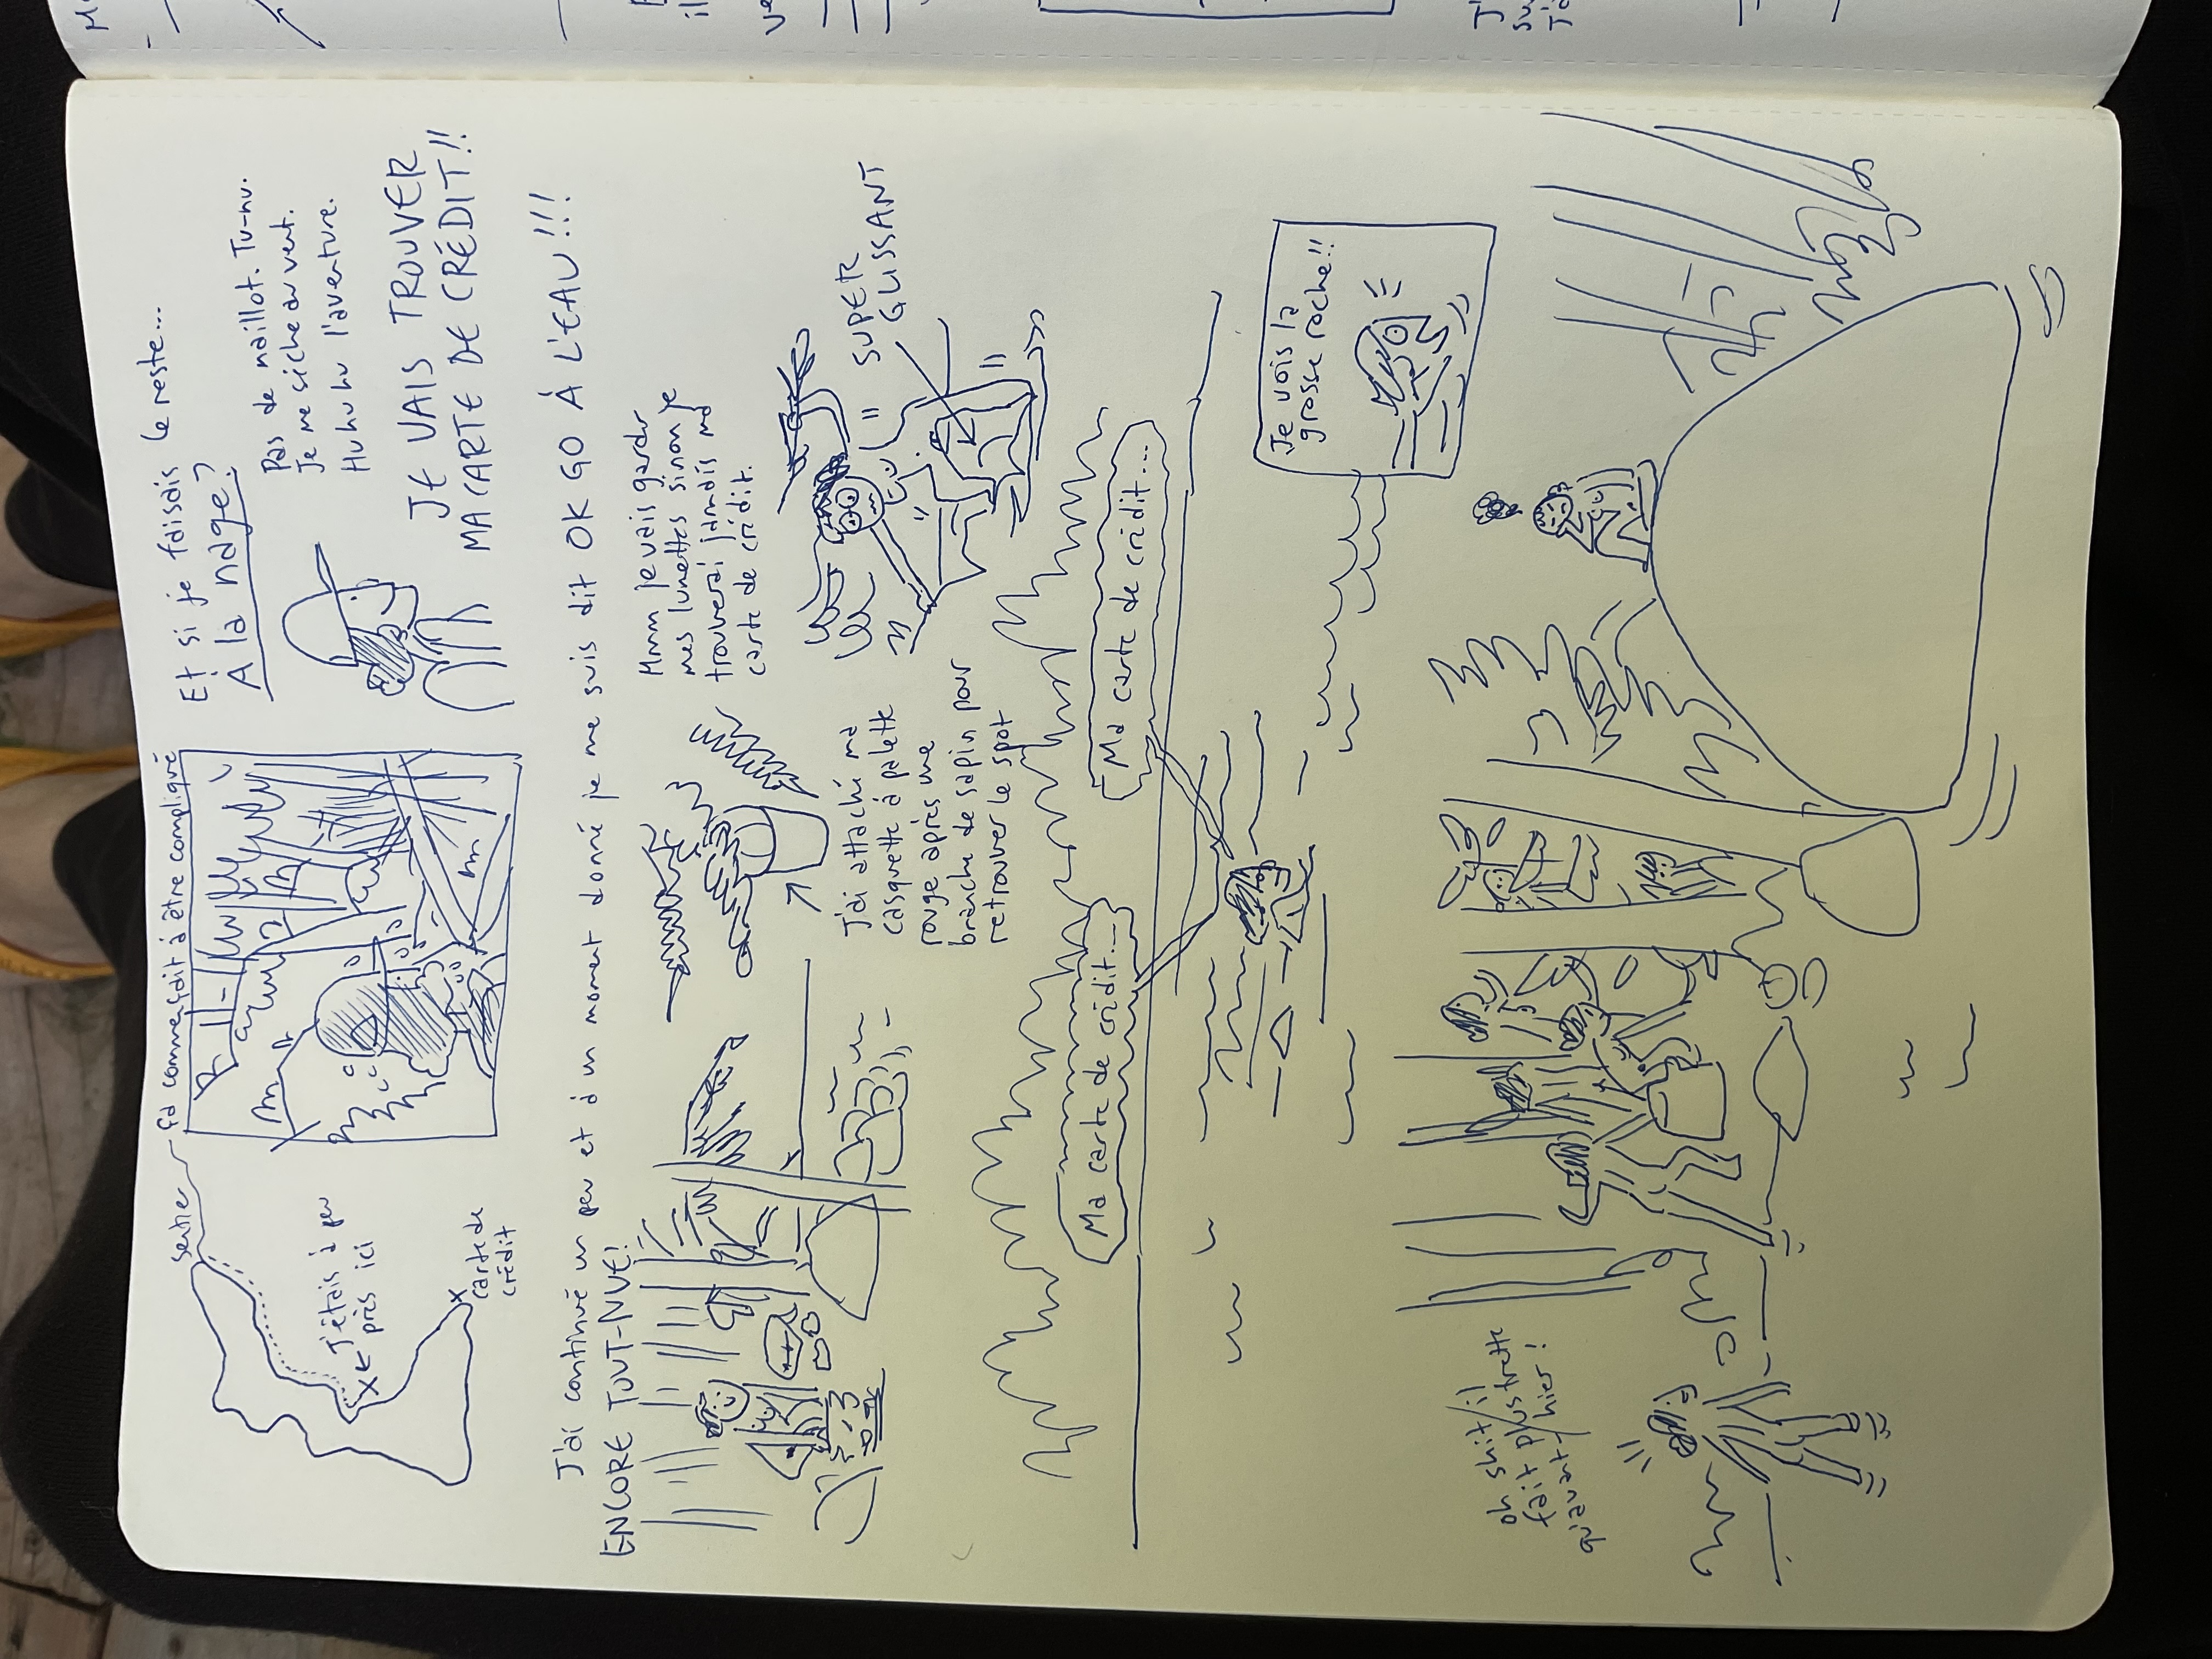 sentier
ça commençait à être compliqué
J'étais à peu
près ici
carte de
crédit
Et si je faisais le reste...
À la nage?
Pas de maillot. Tu-nu.
Je me sèche au vent.
Hu hu hu l'aventure.
JE VAIS TROUVER
MA CARTE DE CRÉDIT!!
J'ai continué un peu et à un moment donné je me suis dit OK GO À L'EAU!!!
ENCORE TOUT-NUE!
J'ai attaché ma
casquette à palette
rouge après une
branche de sapin pour
retrouver le spot
Mmm je vais garder
mes lunettes sinon je
trouverai jamais ma
carte de crédit.
SUPER
GLISSANT
Ma carte de crédit...
Ma carte de crédit...
Je vois la
grosse roche!!
oh shit!!
fait plus frette
qu'avant/hier!